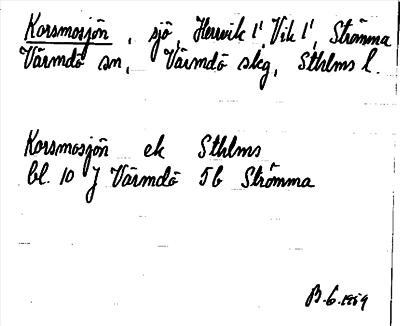 Korsmosjön, sjö, Herrvik 1' Vik 1', Strömma
Värmdö sn, Värmdö skg, Sthlms l.
Korsmosjön ek Sthlms
bl. 10 J Värmdö 5b Strömma
B-G. 1959